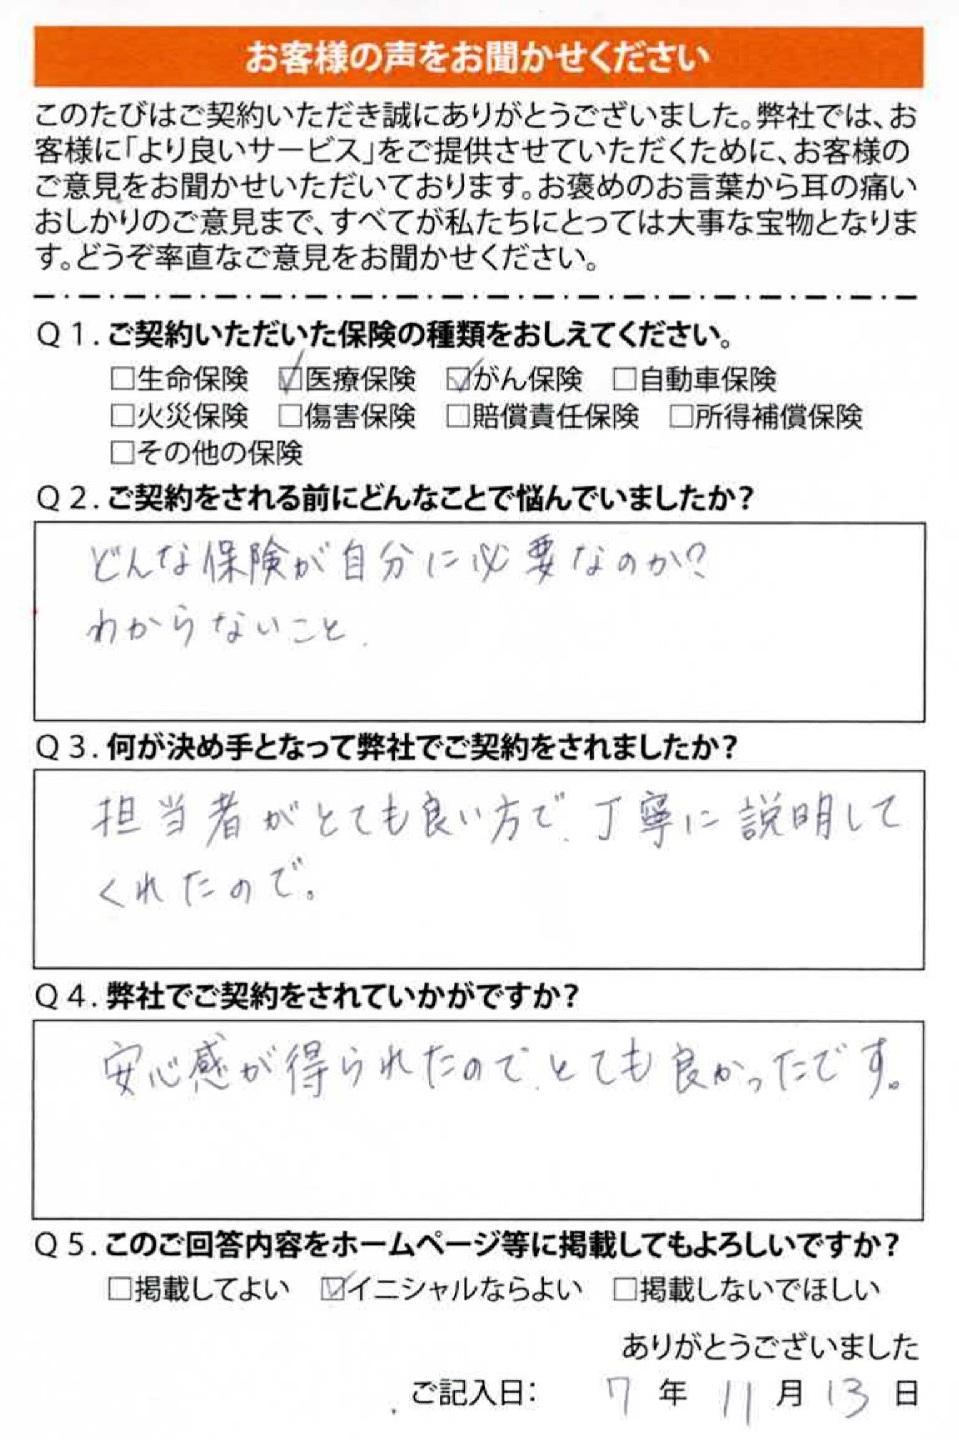 お客様の声をお聞かせください
このたびはご契約いただき誠にありがとうございました。弊社では、お
客様に「より良いサービス」をご提供させていただくために、お客様の
ご意見をお聞かせいただいております。お褒めのお言葉から耳の痛い
おしかりのご意見まで、すべてが私たちにとっては大事な宝物となりま
す。どうぞ率直なご意見をお聞かせください。
Q1. ご契約いただいた保険の種類をおしえてください。
□生命保険 ☑医療保険 ☑がん保険 □自動車保険
□火災保険 □傷害保険 □賠償責任保険 □所得補償保険
□その他の保険
Q2. ご契約をされる前にどんなことで悩んでいましたか?
どんな保険が自分に必要なのか?
わからないこと.
Q3. 何が決め手となって弊社でご契約をされましたか?
担当者がとても良い方で、丁寧に説明して
くれたので。
Q4. 弊社でご契約をされていかがですか?
安心感が得られたので、とても良かったです。
Q5. このご回答内容をホームページ等に掲載してもよろしいですか?
□掲載してよい ☑イニシャルならよい □掲載しないでほしい
ありがとうございました
ご記入日: 7年 11月 13日